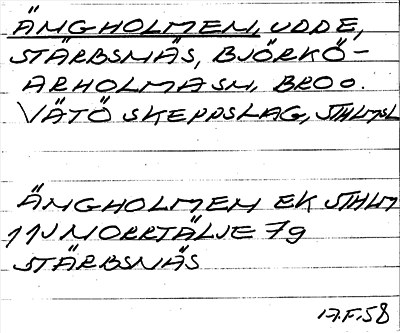 ÄMGHOLMEN, UDDE,
STÄRBSNÄS, BJÖRKÖ-
ARHOLMASN, BRO O.
VÄTÖ SKEPPSLAG, STHLMSL
ÄMGHOLMEN EK STHLM
11J NORRTÄLJE 79
STÄRBSNÄS
17.F.58